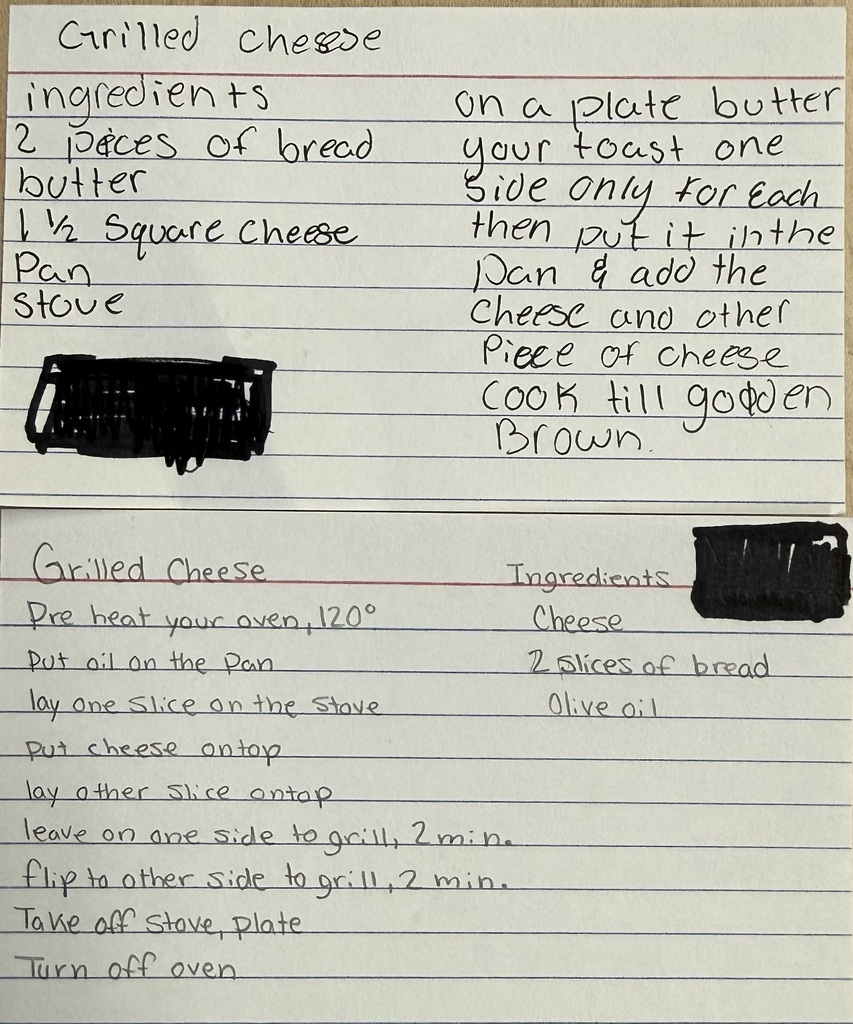 Grilled cheese
ingredients
2 pieces of bread
butter
1 1/2 Square cheese
Pan
stove
on a plate butter
your toast one
side only for each
then put it in the
pan & add the
cheese and other
Piece of cheese
cook till golden
Brown.
Grilled Cheese
Pre heat your oven, 120°
put oil on the pan
lay one slice on the stove
put cheese ontop
lay other slice ontop
leave on one side to grill, 2 min.
flip to other side to grill, 2 min.
Take off stove, plate
Turn off oven
Ingredients
Cheese
2 slices of bread
Olive oil